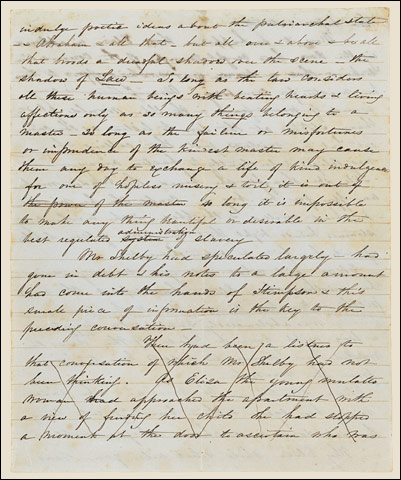 indulge poetic ideas about the patriarchal state
& Abraham & all that - but all over & above & be all
that broods a dreadful shadow over the scene - the
shadow of Law - So long as the law considers
all these human beings with beating hearts & living
affections only as so many things belonging to a
master - so long as the failure or misfortunes
or imprudence of the kindest master may cause
them any day to exchange a life of kind indulgence
for one of hopeless misery & toil, it is out of
the power of the master so long it is impossible
to make any thing beautiful or desirable in the
administration
best regulated system slavery
Mr Shelby had speculated largely - had
gone in debt & his notes to a large amount
had come into the hands of Stimpson & this
small piece of information is the key to the
preceding conversation -
There had been a listner to
that conversation of which Mr Shelby had not
been thinking. As Eliza the young mulatto
woman had approached the apartment with
a view of finding her child she had stopped
a moment at the door to ascertain who was